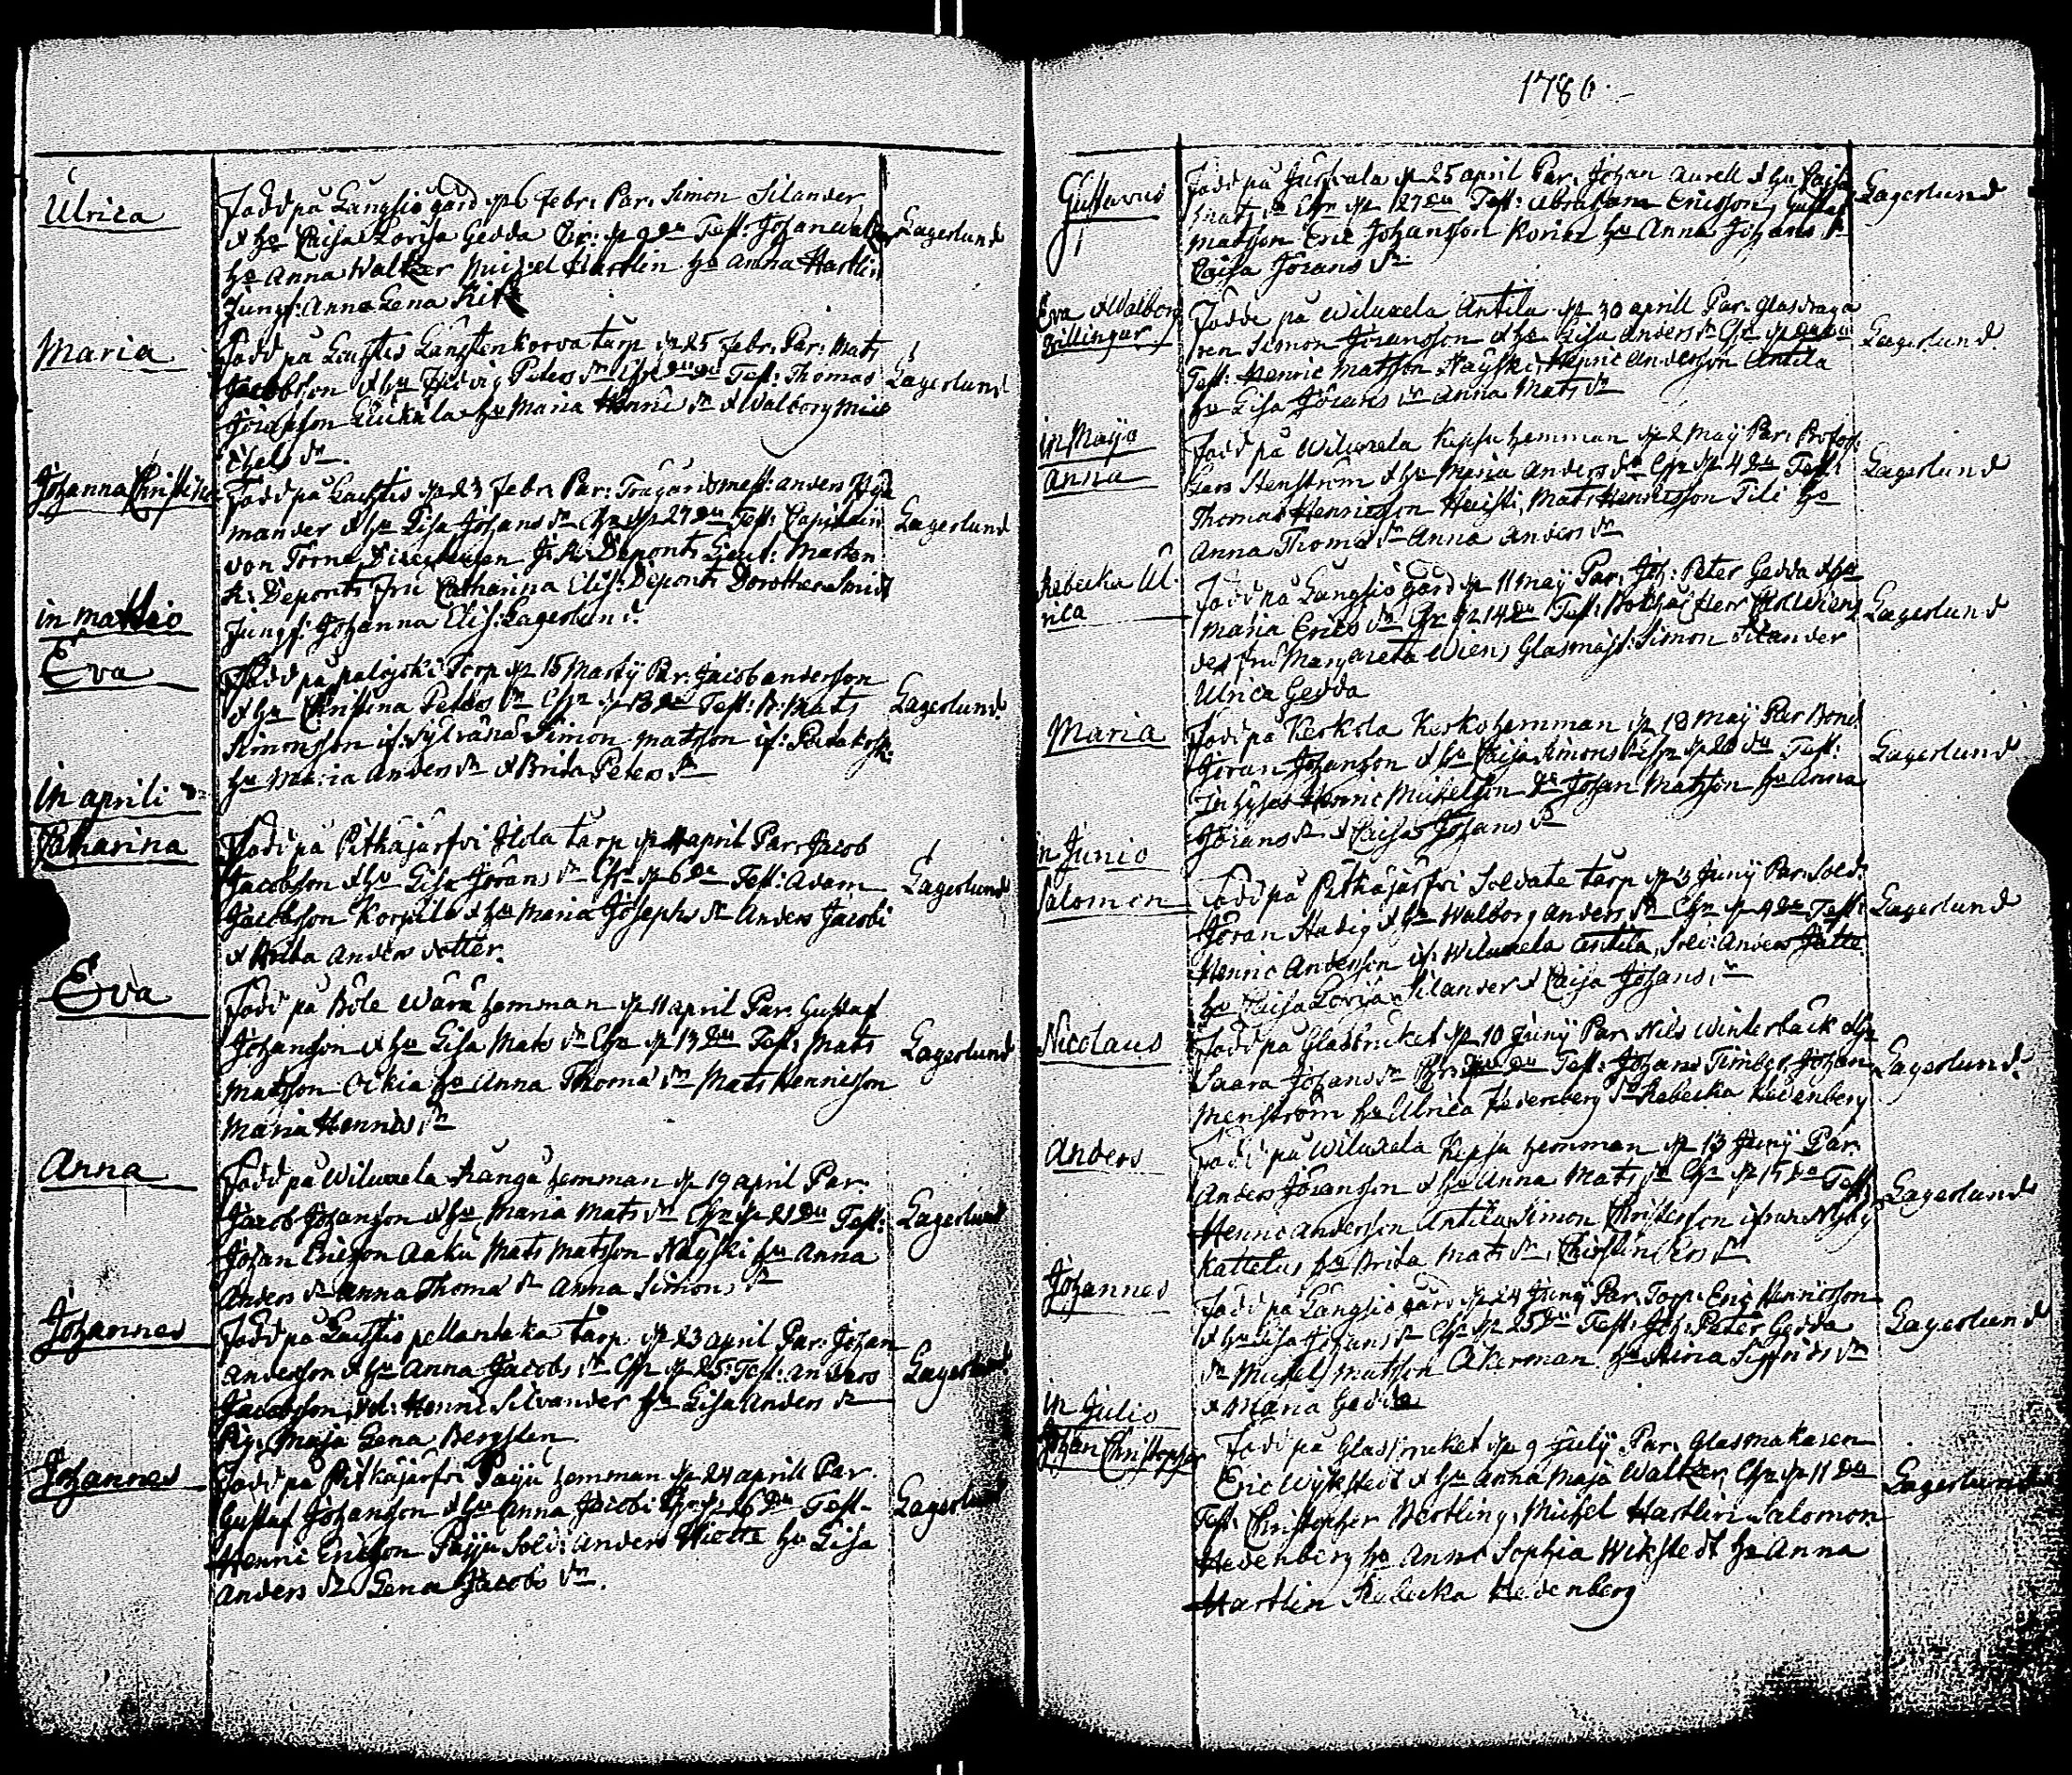 Ulrica
Född på Långsjö gård d. 6 Febr. Par. Simon Silander
& hu Caisa Lovisa Gedda Chr: d. 9 du Test: Johan Waltzer
hu Anna Waltzer Michel Hartlin hu Anna Hartlin
Jungf: Anna Lena
Lagerlund
Maria
Född på torp d. 25 Febr. Par: Mats
Jacobsson & hu Hedvig Peters dr Test: Thomas
Jöransson hu Maria Henric dr & Walborg Mic
chels dr.
Lagerlund
Johanna Christina
Född på d. 23 Febr. Par: Trägårdsmest: Anders
mander & hu Lisa Johans dr Chr d. 27 du Test: Capitain
von Torne, J: K: Deponts Lieut: Marten
K: Deponts Fru Catharina Elis: Deponts Dorothea Smidt
Jungf: Johanna Elis: Lagerlund.
Lagerlund
in Martio
Eva
Född på Palojski Torp d. 15 Martij Par: Jacob Anderson
& hu Christina Peters dr Chr d. du Test: B: Mats
Simonsson if: Simon Matsson if:
hu Maria Anders dr & Brita Peters dr
Lagerlund
in aprili
Catharina
Född på Pitkäjärfvi torp d. 4 april Par: Jacob
Jacobsson & hu Lisa Jörans dr Chr d. 6 du Test: Adam
Jacobsson Korpila & hu Maria Josephs dr Anders Jacobi
& Brita Anders dotter.
Lagerlund
Eva
Född på Böle Wara hemman d. 11 april Par. Gustaf
Johansson & hu Lisa Mats dr Chr d. 13 du Test: Mats
Matsson Ockia hu Anna Thomæ dr Mats Henricsson
Maria Henrics dr
Lagerlund
Anna
Född på Wiluxela Kanga hemman d. 19 april Par.
Jacob Johansson & hu Maria Mats dr Chr d. 21 du Test:
Johan Ericsson Aaku Mats Matsson Näyski hu Anna
Anders dr Anna Thomæ dr Anna Simons dr
Lagerlund
Johannes
Född på torp d. 23 april Par: Johan
Anderson & hu Anna Jacobs dr Chr d. 25: Test: Anders
Jacobsson, Sol: Henric Silvander hu Lisa Anders dr
Pig. Maja Lena Bergsten
Lagerlund
Johannes
Född på Pitkäjärfvi Päyju hemman d. 24 april Par.
Gustaf Johansson & hu Anna Jacobi Chr d. 26 du Test.
Henric Ericsson Päyju Sold: Anders Hiette hu Lisa
Anders dr Lena Jacobs dr.
Lagerlund
1786.
Gustavus
Född på d. 25 april Par. Johan Aurell & hu Caisa
Mats dr Chr d. 27 du Test: Abraham Ericsson, Gustaf
Matsson Eric Johansson hu Anna Johans dr
Caisa Jörans dr
Lagerlund
Eva & Walborg
Tvillingar
Födde på Wiluxela Antila d. 30 aprill Par. Glasdraga
ren Simon Jöransson & hu Lisa Anders dr Chr d.
Test: Henric Matsson Näyski, Henric Andersson Antila
hu Lisa Jörans dr Anna Mats dr
Lagerlund
in Majo
Anna
Född på Wiluxela Kepsu hemman d. 2 Maij Par.
Lars Stenström & hu Maria Anders dr Chr d. 4 du Test:
Thomas Henricsson Heisti, Mats Henricsson Tili hu
Anna Thomæ dr Anna Anders dr
Lagerlund
Rebecka Ul
rica
Född på Långsjö gård d. 11 Maij Par. Joh: Peter Gedda & hu
Maria Erics dr Chr d. 14 du Test: Herr
des fru Margareta Wiens Glasmäst: Simon Silander
Ulrica Gedda
Lagerlund
Maria
Född på Kerkola Kerko hemman d. 18 Maij Par Bond
Jöran Johansson & hu Caisa Simons dr Chr d. 20 du Test:
Inhyses Henric Michelsson dr Johan Matsson hu Anna
Jörans dr & Caisa Johans dr
Lagerlund
in Junio
Salomon
Född på Pitkäjärfvi Soldate torp d. 3 Junij Par. Sold:
Jöran Stadig & hu Walborg Anders dr Chr d. 4 du Test:
Henric Andersson if: Wiluxela Antila, Sold: Anders
hu Caisa Lovisa Silander & Caisa Johans dr
Lagerlund
Nicolaus
Född på Glasbruket d. 10 Junij Par. Nils Winterback & hu
Saara Johans dr Test: Johans Johan
Menström hu Ulrica Hedenberg Rebecka Hedenberg
Lagerlund.
Anders
Född på Wiluxela Kepsu hemman d. 13 Junij Par.
Anders Jöransson & hu Anna Mats dr Chr d. 15 du Test:
Henric Andersson Antila Simon Christersson ifrån Nyby
Kattelus hu Brita Mats dr, Christin Ers dr
Lagerlund
Johannes
Född på Långsjö gård d. 24 Junij Par. Torp. Eric Henricsson
& hu Lisa Johans dr Chr d. 25 du Test: Joh: Peter Gedda
dr Michel Matsson Åkerman hu Stina Sigfrids dr
& Maria Gedda
Lagerlund
in Julio
Johan Christopher
Född på Glasbruket d. 9 Julij Par. Glasmakaren
Eric Wikstedt & hu Anna Maja Waltzer, Chr d. 11 du
Test: Christopher Bertling, Michel Hartlin Salomon
Hedenberg hu Anna Sophia Wikstedt hu Anna
Hartlin Rebecka Hedenberg
Lagerlund